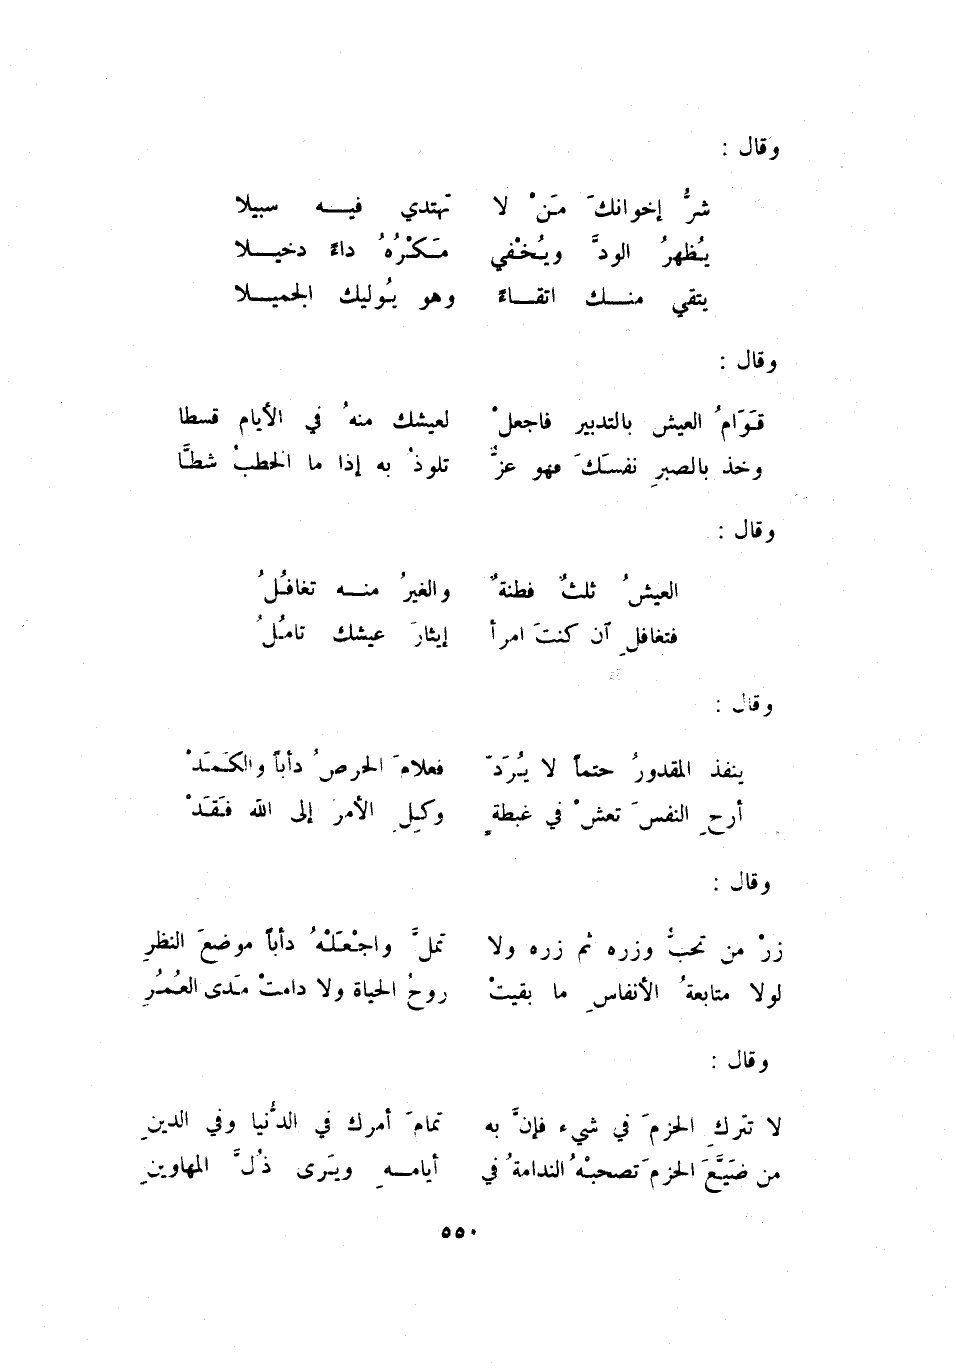 وقال :
شرُّ إخوانكَ مَنْ لا تهتدي فيه سبيلا
يُظهرُ الودَّ ويُخْفي مَكْرُهُ داءً دخيلا
يتقي منك اتقاءً وهو يُوليك الجميلا
وقال :
قَوَامُ العيش بالتدبير فاجعلْ لعيشك منهُ في الأيام قسطا
وخذ بالصبرِ نفسَكَ فهو عزٌّ تلوذُ به إذا ما الخطبْ شطَّا
وقال :
العيشُ ثلثٌ فطنةٌ والغيرُ منه تغافُلُ
فتغافلِ آن كنتَ امرأ إيثارَ عيشك تامُلُ
وقال :
ينفذ المقدورُ حتماً لا يُرَدّ فعلامَ الحرصُ دأباً والكَمَدْ
أرحِ النفسَ تعشْ في غبطةٍ وكِلِ الأمرَ إلى الله فَقَدْ
وقال :
زرْ من تحبُّ وزره ثم زره ولا تملَّ واجْعَلْهُ دأباً موضعَ النظرِ
لولا متابعةُ الأنفاسِ ما بقيتْ روحُ الحياة ولا دامتْ مَدى العُمُرِ
وقال :
لا تتركِ الحزمَ في شيء فإنَّ به تمامَ أمرك في الدُّنيا وفي الدينِ
من ضَيَّعَ الحزمَ تصحبْهُ الندامةُ في أيامهِ ويَرى ذُلَّ المهاوينِ
٥٥٠